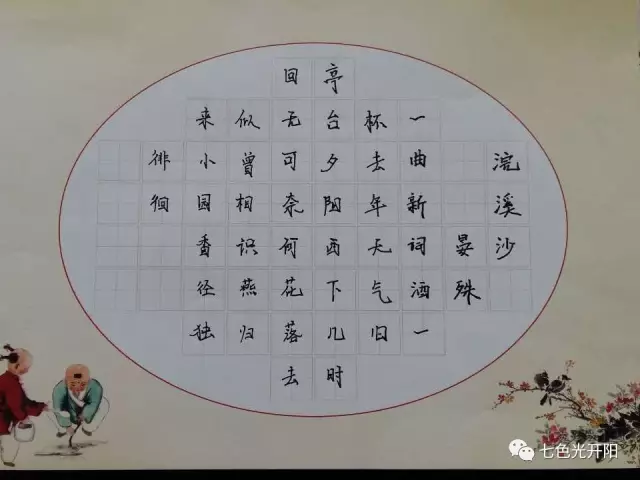 浣溪沙
晏殊
一曲新词酒一
杯去年天气旧
亭台夕阳西下几时
回无可奈何花落去
似曾相识燕归
来小园香径独
徘徊
七色光开阳